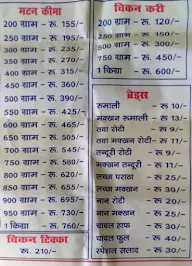 मटन कीमा
200 ग्राम - रू. 155/-
250 ग्राम - रू. 195/-
300 ग्राम - रू. 235/-
350 ग्राम - रू. 270/-
400 ग्राम - रू. 315/-
450 ग्राम - रू. 360/-
500 ग्राम - रू. 390/-
550 ग्राम - रू. 425/-
600 ग्राम - रू. 465/-
650 ग्राम - रू. 505/-
700 ग्राम - रू. 545/-
750 ग्राम - रू. 580/-
800 ग्राम - रू. 620/-
850 ग्राम - रू. 655/-
900 ग्राम - रू. 695/-
950 ग्राम - रू. 730/-
1 किग्रा - रू. 760/-
चिकन टिक्का
रू. 210/-
चिकन करी
200 ग्राम - रू. 120/-
250 ग्राम - रू. 150/-
500 ग्राम - रू. 300/-
750 ग्राम - रू. 450/-
1 किग्रा - रू. 600/-
ब्रेड्स
रूमाली - रू. 10/-
मक्खन रूमाली - रू. 13/-
तवा रोटी - रू. 9/-
मक्खन तवा रोटी - रू. 11/-
तन्दूरी रोटी - रू. 9/-
मक्खन तन्दूरी - रू. 11/-
लच्छा पराठा - रू. 25/-
लच्छा मक्खन - रू. 30/-
नान रोटी - रू. 20/-
नान मक्खन - रू. 25/-
चावल हाफ - रू. 30/-
चावल फुल - रू. 40/-
स्पेशल सलाद - रू. 30/-